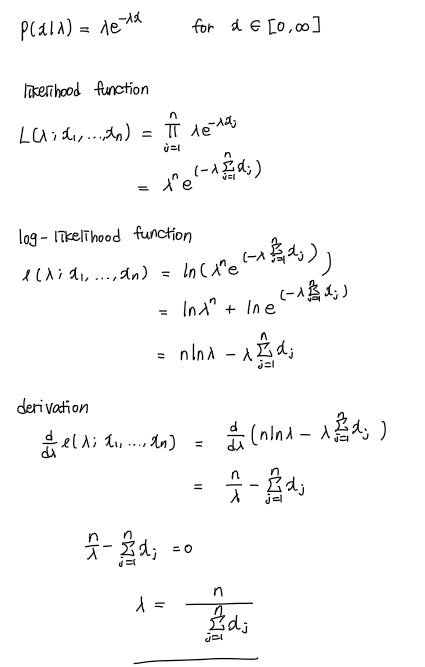 P(x|λ) = λe^{-λx} for x ∈ [0,∞]
likelihood function
L(λ; x₁, ..., xₙ) = ∏_{j=1}^{n} λe^{-λx_j}
= λⁿ e^{(-λ∑_{j=1}^{n} x_j)}
log-likelihood function
ℓ(λ; x₁, ..., xₙ) = ln(λⁿ e^{(-λ∑_{j=1}^{n} x_j)})
= lnλⁿ + ln e^{(-λ∑_{j=1}^{n} x_j)}
= n lnλ - λ∑_{j=1}^{n} x_j
derivation
d/dλ ℓ(λ; x₁, ..., xₙ) = d/dλ (n lnλ - λ∑_{j=1}^{n} x_j)
= n/λ - ∑_{j=1}^{n} x_j
n/λ - ∑_{j=1}^{n} x_j = 0
λ = n/∑_{j=1}^{n} x_j